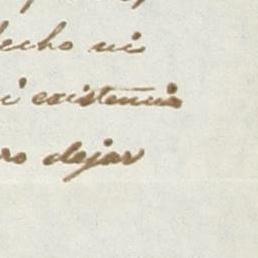 echo ni
i existencia
ro dejar